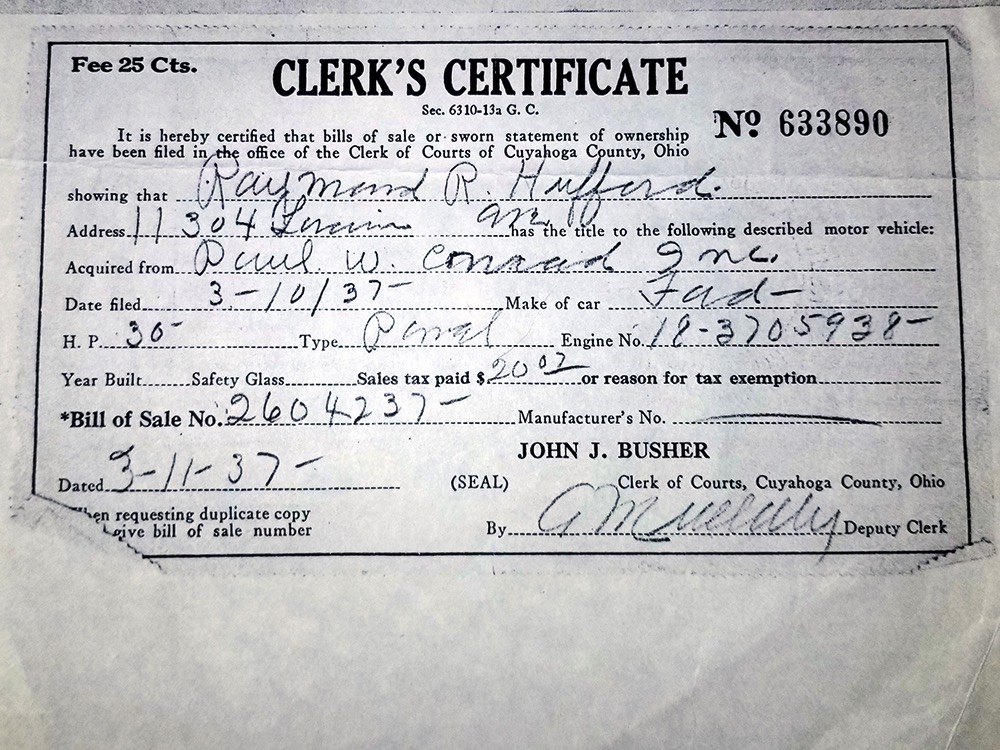 Fee 25 Cts.
CLERK'S CERTIFICATE
Sec. 6310-13a G. C.
No 633890
It is hereby certified that bills of sale or sworn statement of ownership
have been filed in the office of the Clerk of Courts of Cuyahoga County, Ohio
showing that Raymond R. Hufford.
Address 11304 Lorain Ave has the title to the following described motor vehicle:
Acquired from Paul W. Conrad Inc.
Date filed 3-10/37- Make of car Ford-
H. P. 30- Type Engine No. 18-3705938-
Year Built Safety Glass Sales tax paid $20 02 or reason for tax exemption
*Bill of Sale No. 2604237- Manufacturer's No.
JOHN J. BUSHER
Dated 3-11-37- (SEAL) Clerk of Courts, Cuyahoga County, Ohio
When requesting duplicate copy
give bill of sale number
By Deputy Clerk